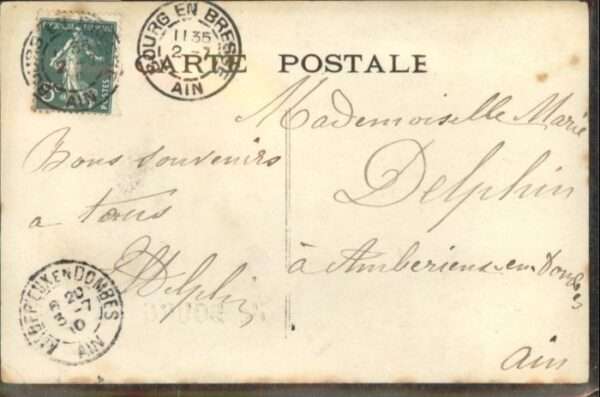 BOURG EN BRESSE
11 35
AIN
CARTE POSTALE
POSTES
AIN
Mademoiselle Marie
Delphin
à Amberieux-en-Dombes
Ain
Bons souvenirs
a tous
Delphin
AMBERIEUX EN DOMBES
20
AIN